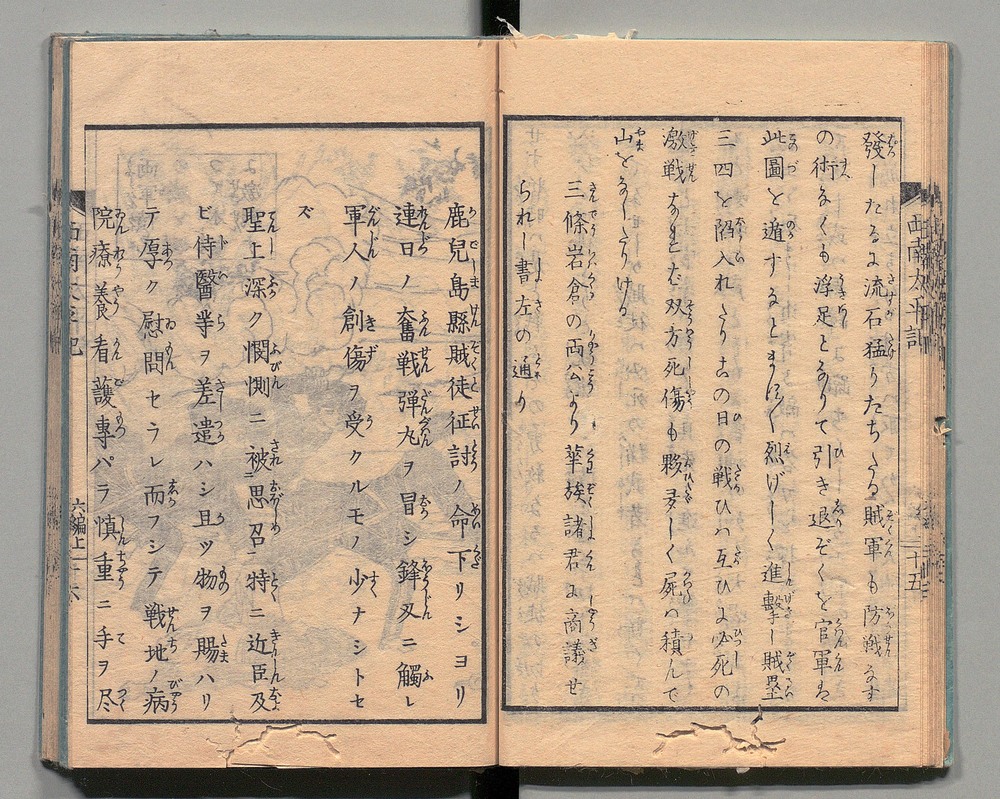 發したるに流石猛りたちたる賊軍も防戦なす
の術なくも浮足となりて引き退ぞくを官軍は
此圖を遁すなとますます烈げしく進擊し賊壘
三四を陷入れたり此の日の戦ひは互ひに必死の
激戦なれば双方死傷も夥多しく屍は積んで
山をなしたりける
三條岩倉の両公より華族諸君に商議せ
られし書左の通り
鹿兒島縣賊徒征討ノ命下リシヨリ
連日ノ奮戦彈丸ヲ冒シ鋒刄ニ觸レ
軍人ノ創傷ヲ受クルモノ少ナシトセ
ズ
聖上深ク憫惻ニ被思召特ニ近臣及
ビ侍醫等ヲ差遣ハシ且ツ物ヲ賜ハリ
テ厚ク慰問セラレ而フシテ戦地ノ病
院療養看護專パラ慎重ニ手ヲ尽
西南太平記
二十五
六編上